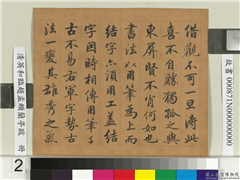 借觀不可一旦得此
喜不自勝獨孤之與
東屏賢不肖何如也
書法以用筆為上而
結字亦須用工蓋結
字因時相傳用筆千
古不易右軍字勢古
法一變其雄秀之氣
清英和臨趙孟頫蘭亭跋 冊
故書000871N000000000
2